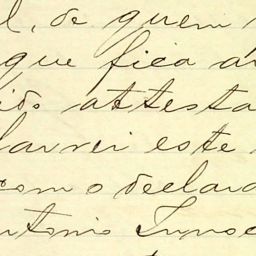 l, de quem
que fica ar
ido attesta
lavrei este
com o declara
ntonio Innoc